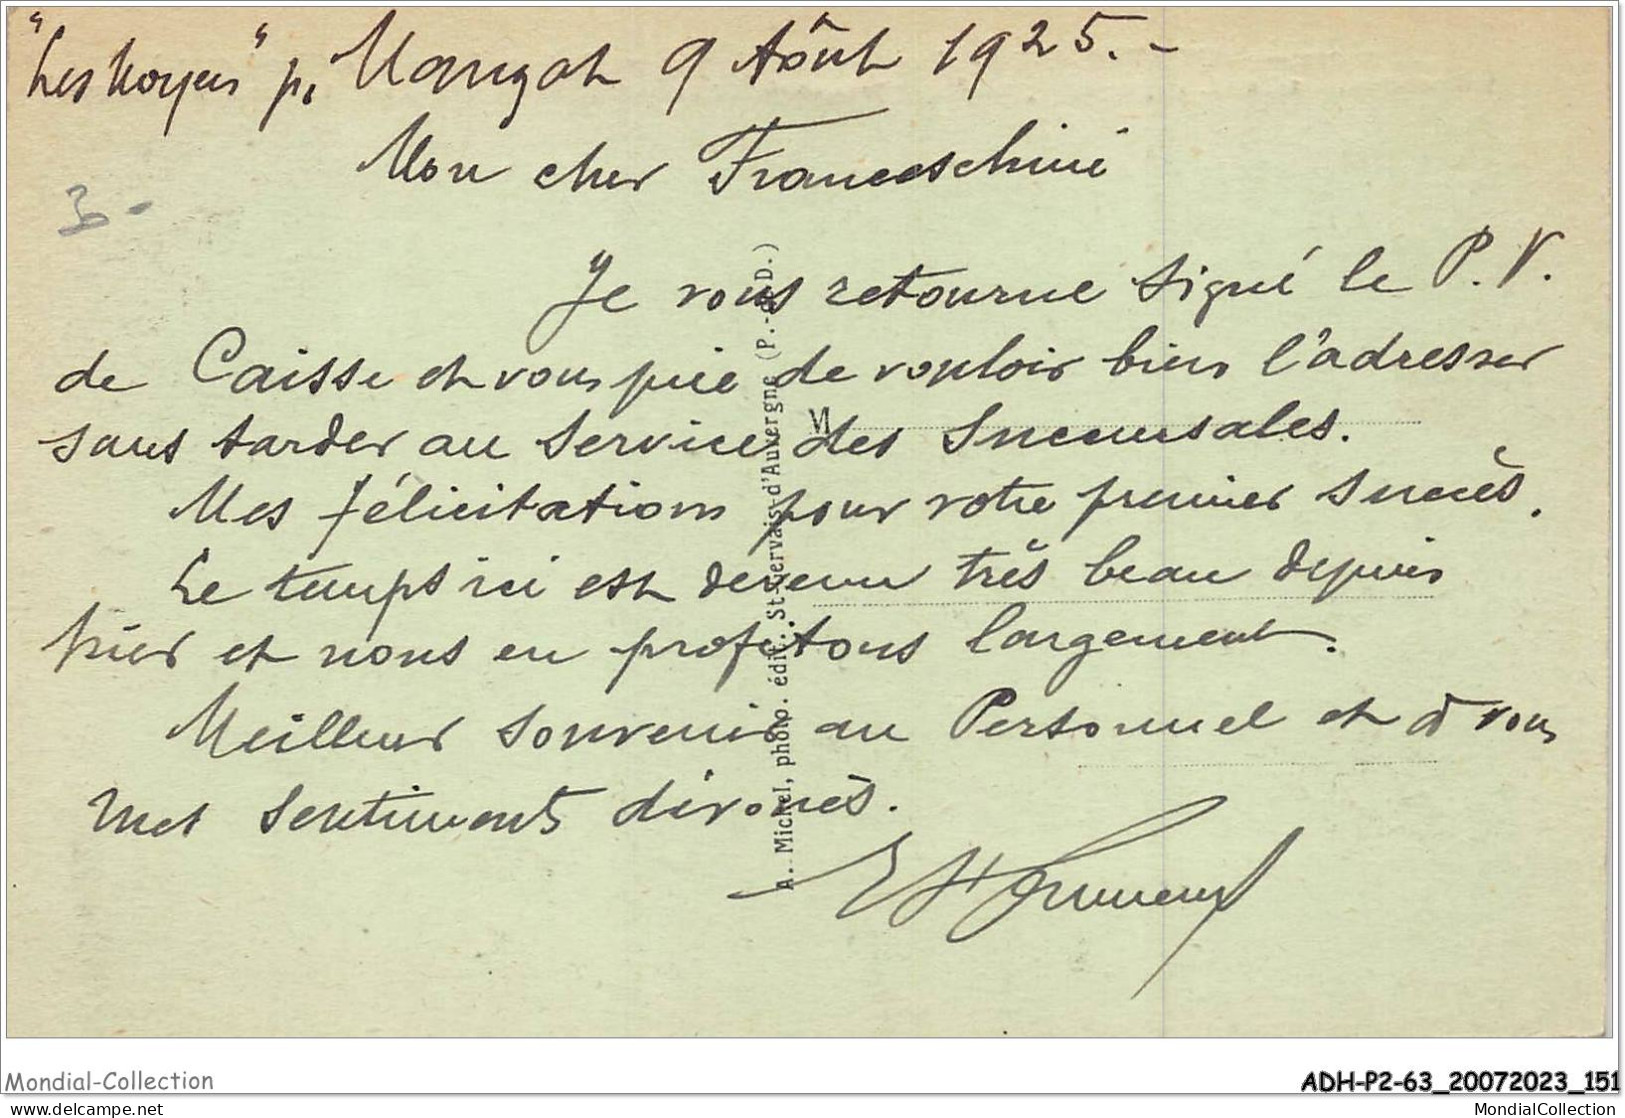 "Les Noyers" p. Manzat 9 Août 1925.-
Mon cher Franceschini
30-
Je vous retourne signé le P.V.
de Caisse et vous prie de vouloir bien l'adresser
sans tarder au Service des Succursales.
Mes félicitations pour votre premier succès.
Le temps ici est devenu très beau depuis
hier et nous en profitons largement.
Meilleur souvenir au Personnel et à vous
mes sentiments dévoués.
A. Michel, photo. édit. St-Gervais-d'Auvergne (P.-de-D.)
Mondial-Collection
ADH-P2-63_20072023_151
https://www.delcampe.net
MondialCollection